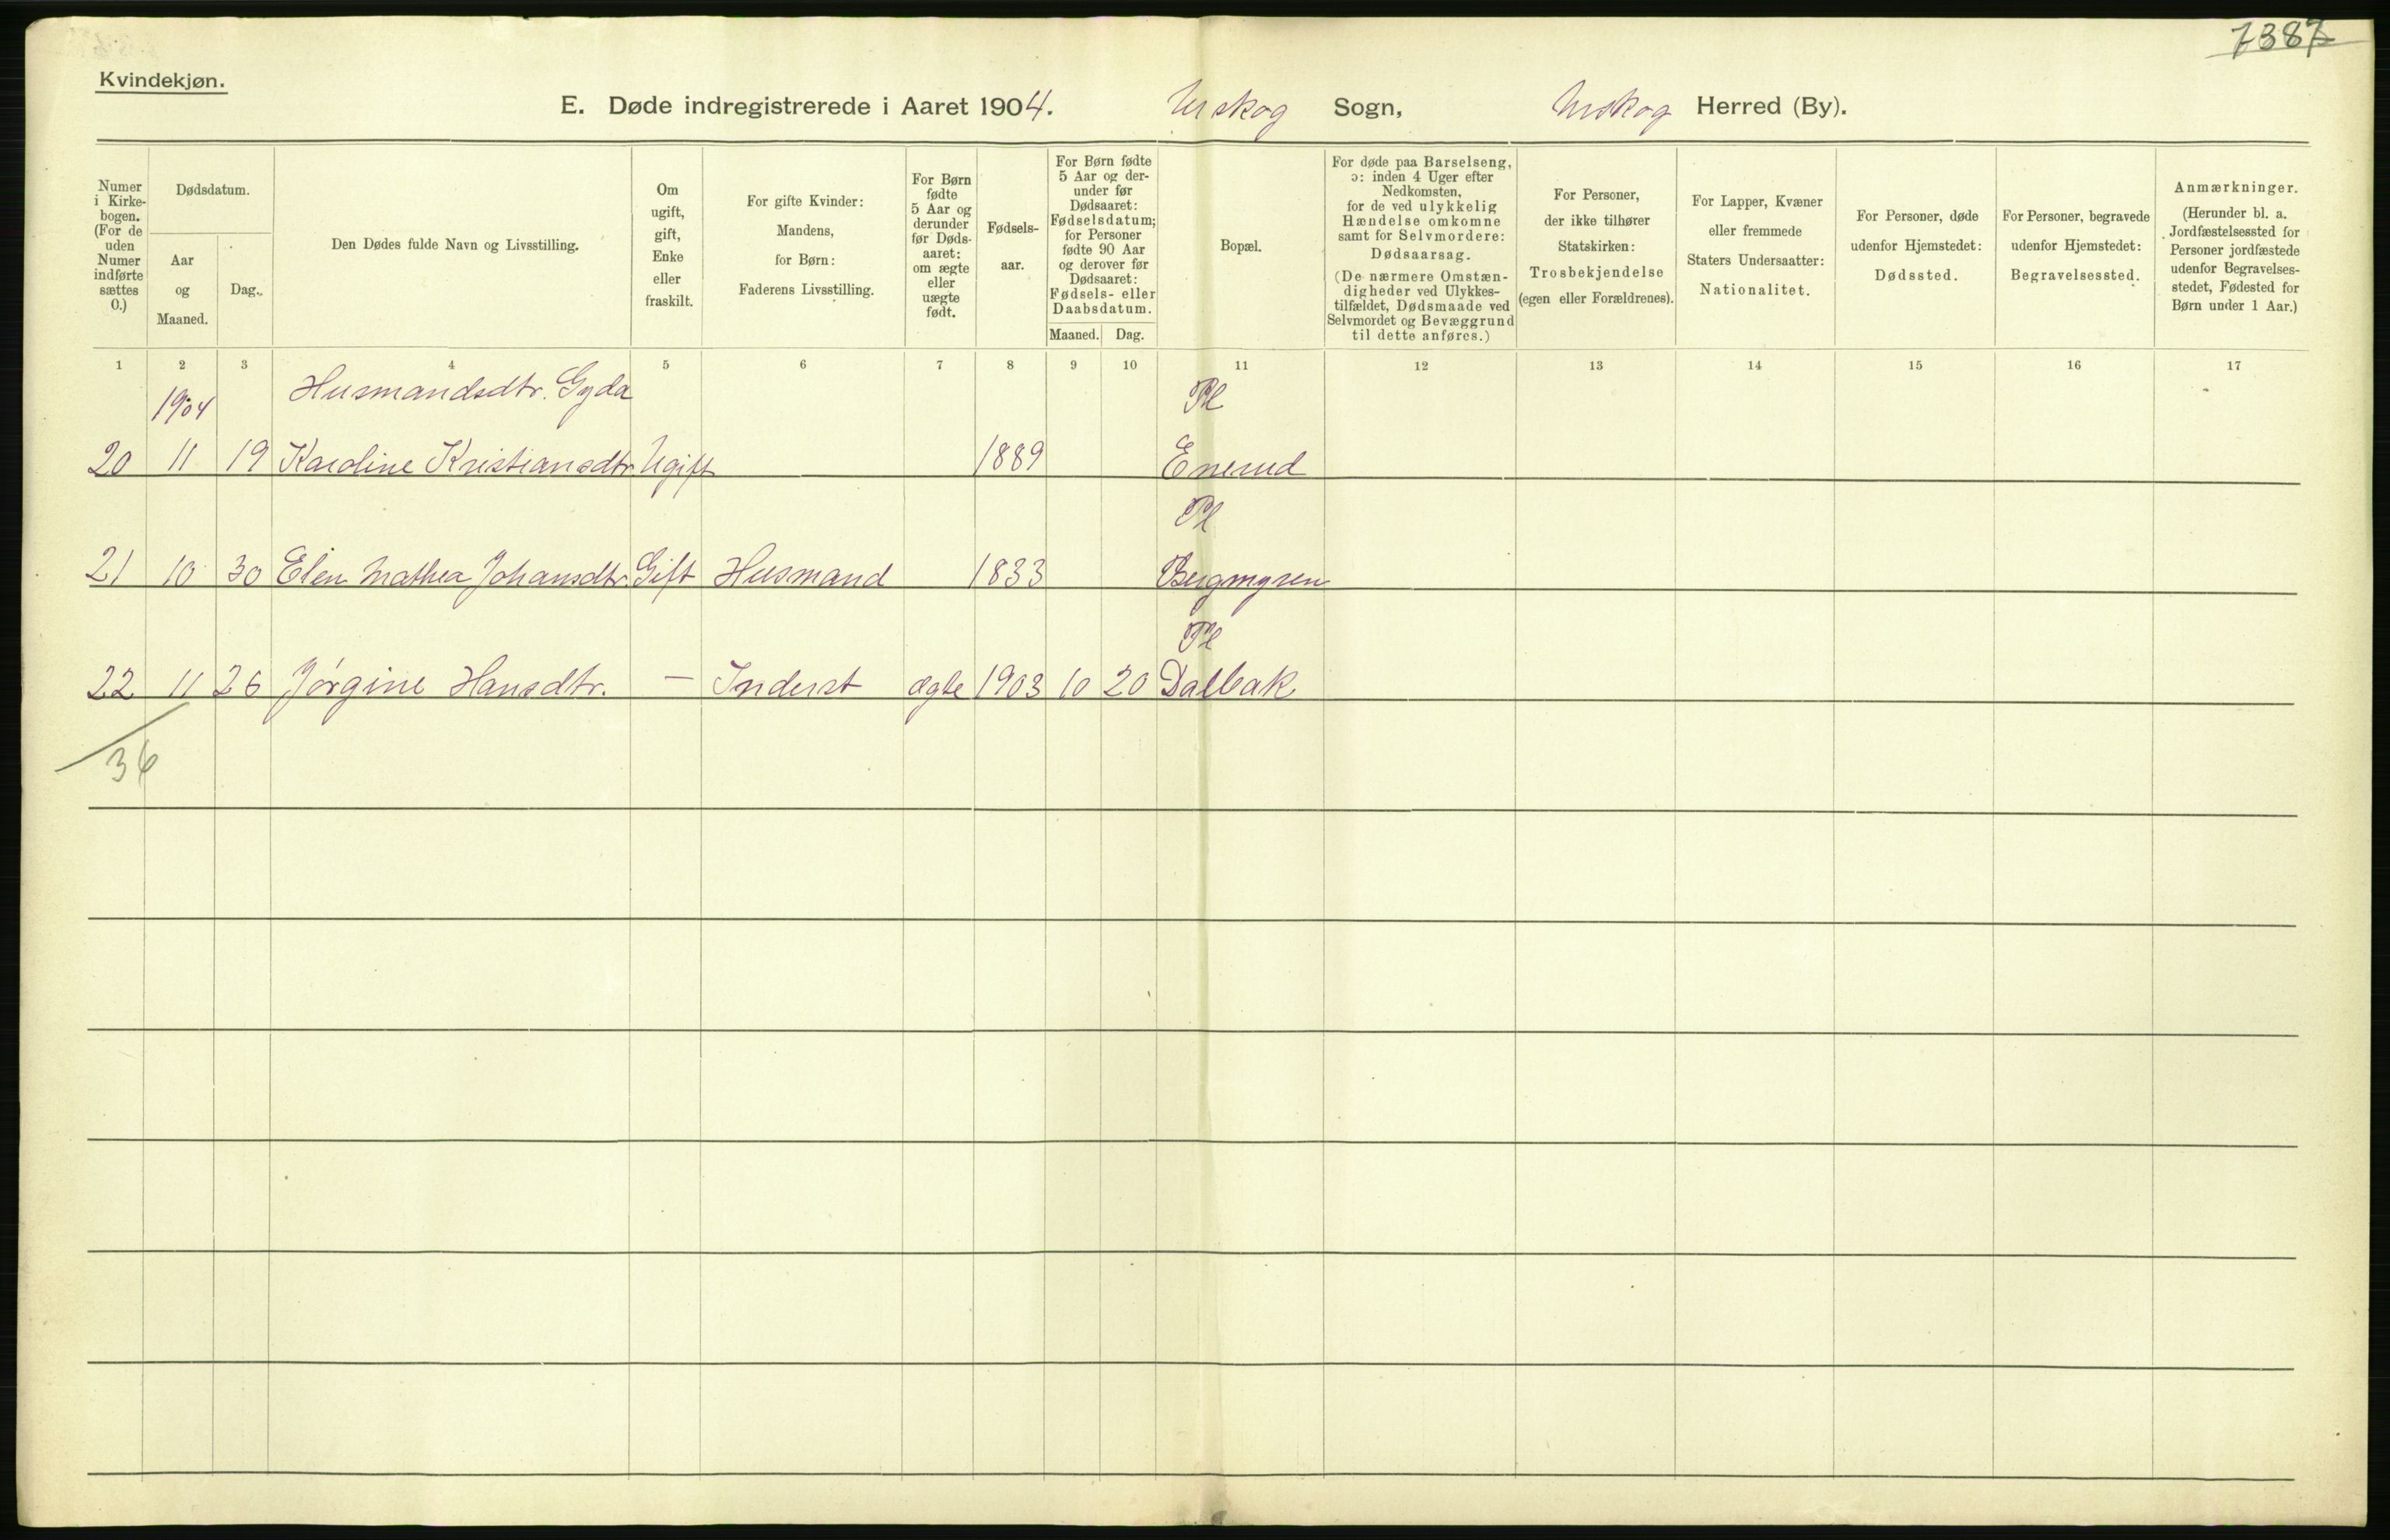 7387
Kvindekjøn.
E. Døde indregistrerede i Aaret 1904. Urskog Sogn, Urskog Herred (By).
Numer i Kirke-bogen. (For de uden Numer indførte sættes 0.)
Dødsdatum.
Aar og Maaned.
Dag.
Den Dødes fulde Navn og Livsstilling.
Om ugift, gift, Enke eller fraskilt.
For gifte Kvinder: Mandens, for Børn: Faderens Livsstilling.
For Børn fødte 5 Aar og derunder før Døds-aaret: om ægte eller uægte født.
Fødsels-aar.
For Børn fødte 5 Aar og der-under før Dødsaaret: Fødselsdatum; for Personer fødte 90 Aar og derover før Dødsaaret: Fødsels- eller Daabsdatum.
Maaned. Dag.
Bopæl.
For døde paa Barselseng, ɔ: inden 4 Uger efter Nedkomsten, for de ved ulykkelig Hændelse omkomne samt for Selvmordere: Dødsaarsag. (De nærmere Omstæn-digheder ved Ulykkes-tilfældet, Dødsmaade ved Selvmordet og Bevæggrund til dette anføres.)
For Personer, der ikke tilhører Statskirken: Trosbekjendelse (egen eller Forældrenes).
For Lapper, Kvæner eller fremmede Staters Undersaatter: Nationalitet.
For Personer, døde udenfor Hjemstedet: Dødssted.
For Personer, begravede udenfor Hjemstedet: Begravelsessted.
Anmærkninger. (Herunder bl. a. Jordfæstelsessted for Personer jordfæstede udenfor Begravelses-stedet, Fødested for Børn under 1 Aar.)
1 2 3 4 5 6 7 8 9 10 11 12 13 14 15 16 17
1904 Husmandsdtr. Gyda Pl
20 11 19 Karoline Kristiansdtr. Ugift 1889 Enerud
Pl
21 10 30 Elen Mathea Johansdtr. Gift Husmand 1833 Bergmyren
Pl
22 11 26 Jørgine Hansdtr. — Inderst ægte 1903 10 20 Dalbak
36